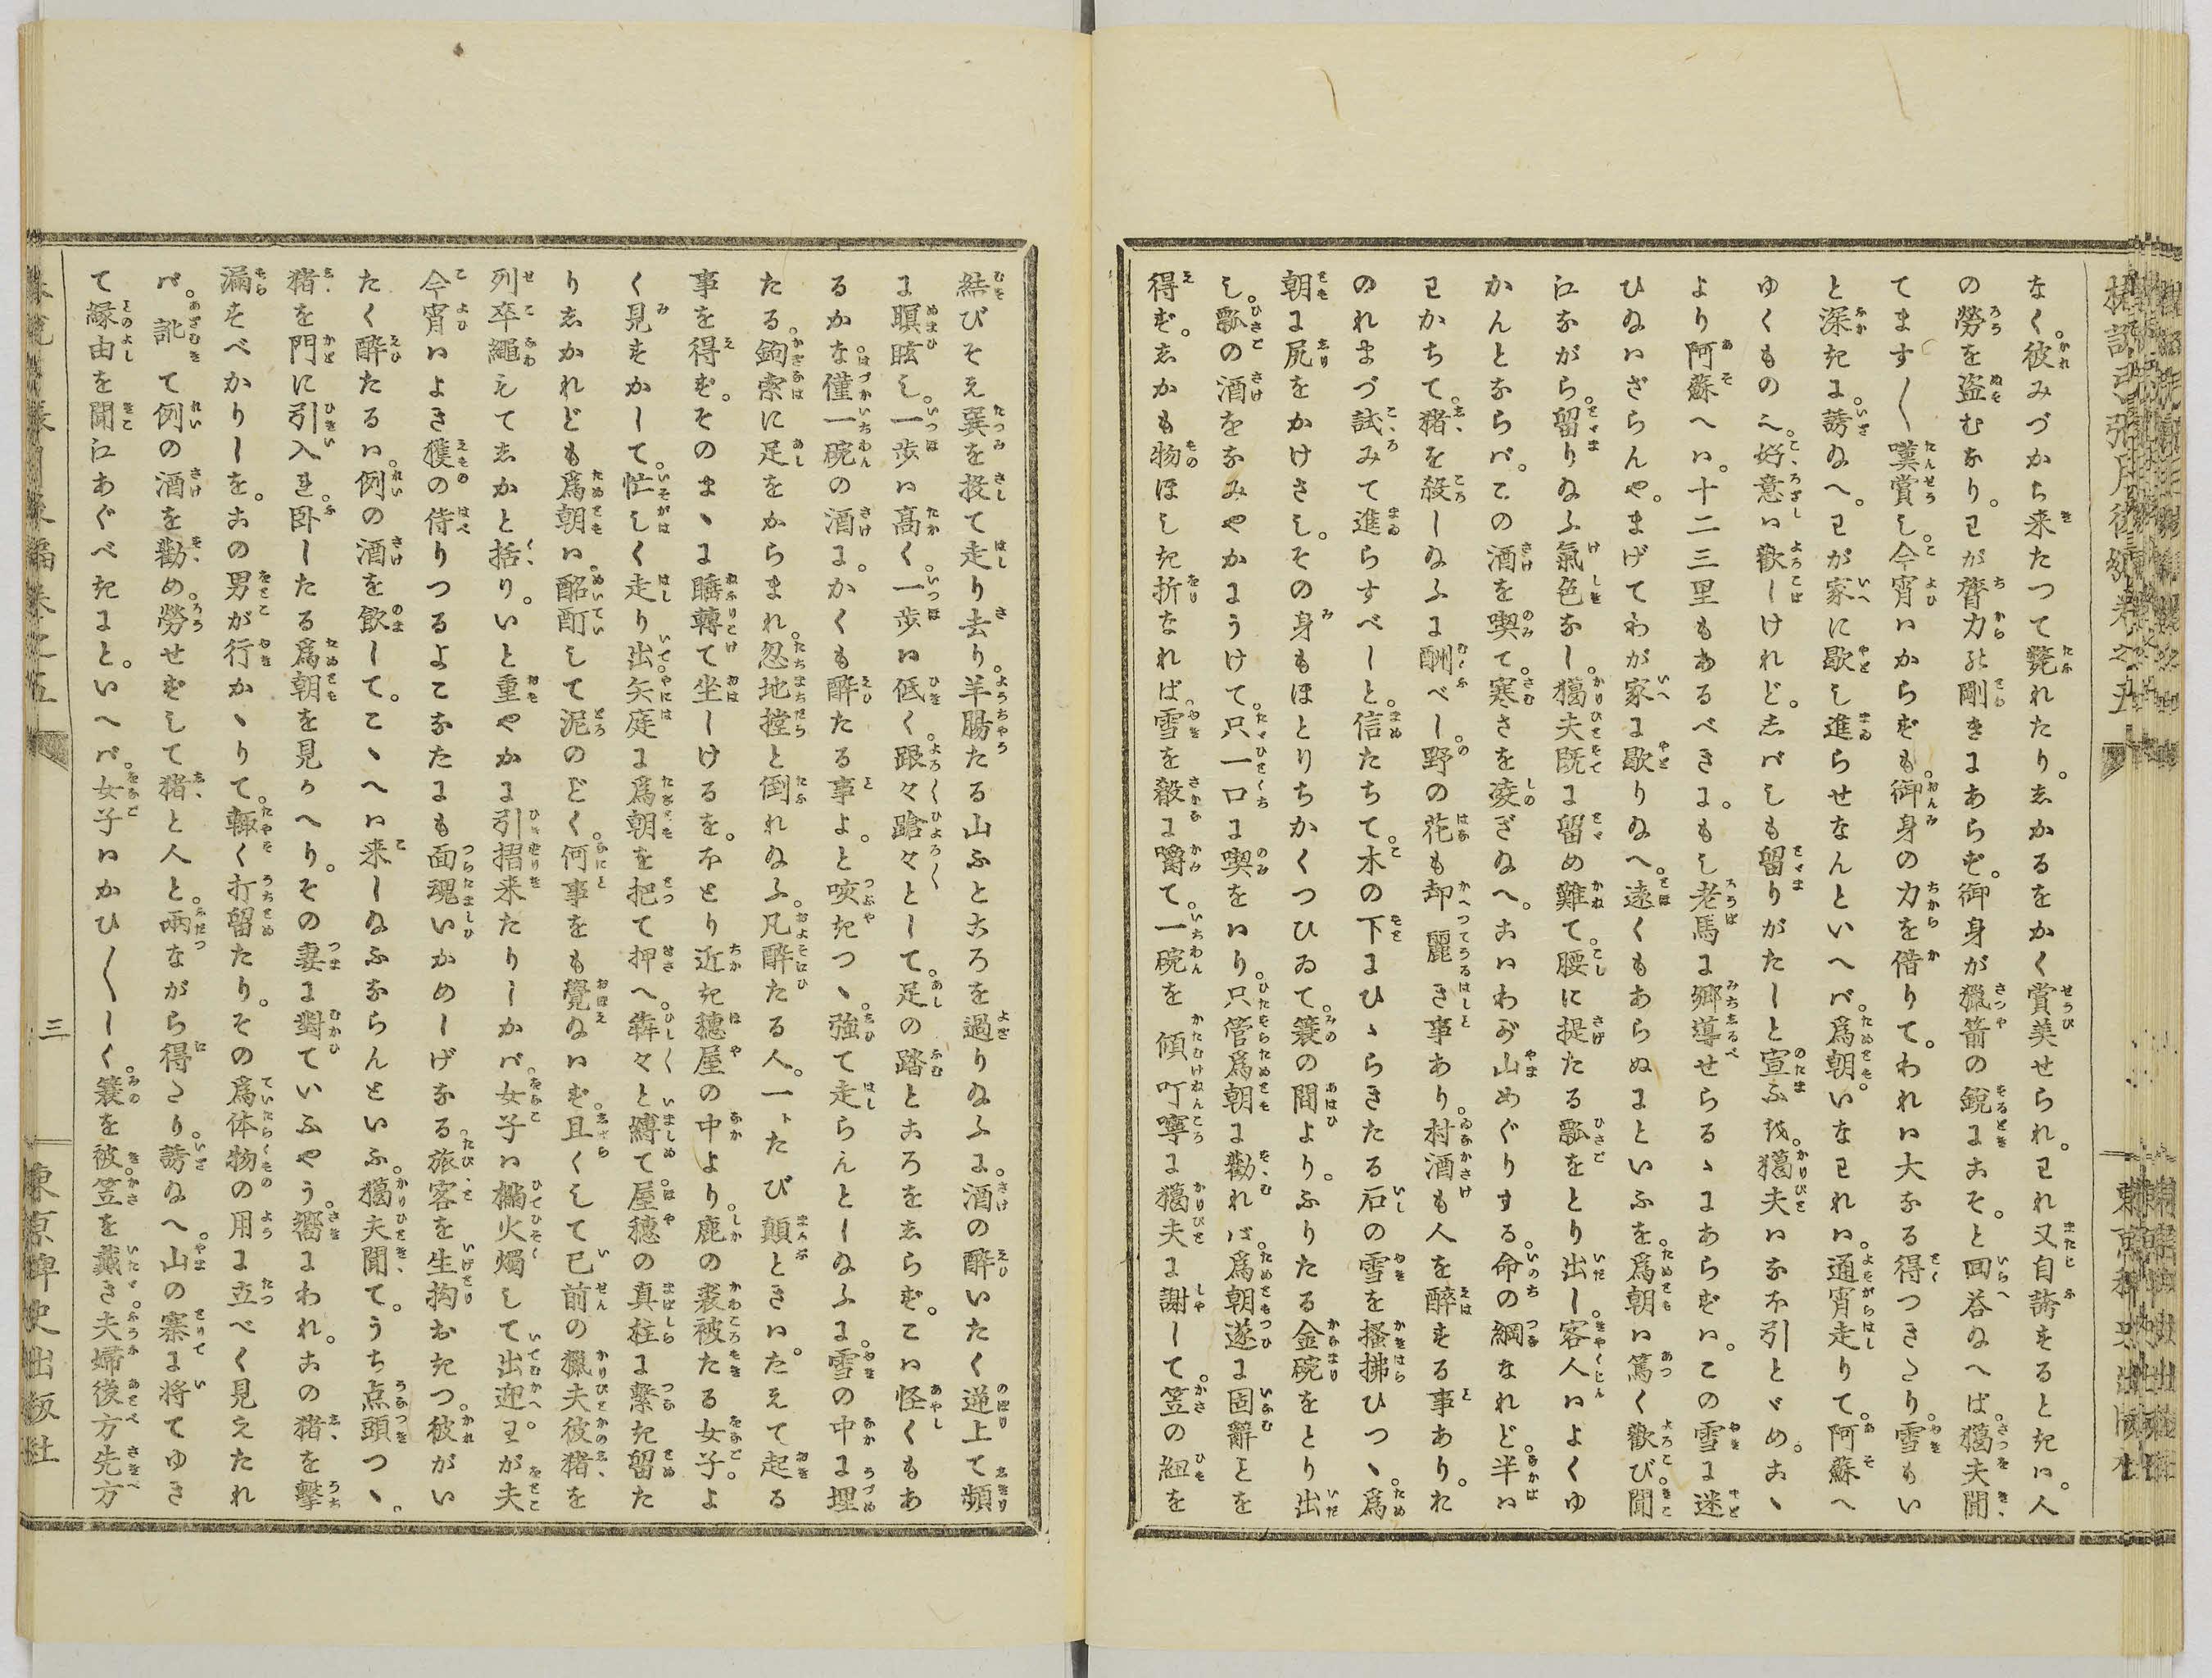 なく。彼みづから来たつて斃れたり。志かるをかく賞美せられ。われ又自誇するときハ。人
の勞を盗むなり。わが膂力の剛きにあらず。御身が獵箭の鋭にこそ。と回荅給へば。獦夫聞
てます〳〵嘆賞し。今宵ハからずも。御身の力を借りて。われハ大なる得つきたり。雪もい
と深きに。誘給へ。わが家に歇し進らせなんといへバ。爲朝。いなわれハ。通宵走りて。阿蘇へ
ゆくものへ。好意ハ歡しけれど。志バしも留りがたしと宣ふを。獦夫ハなほ引とゞめ。こゝ
より阿蘇へハ。十二三里もあるべきに。もし老馬に郷導せらるゝにあらずハ。この雪に迷
ひ給ハざらんや。まげてわが家に歇り給へ。遠くもあらぬにといふを。爲朝ハ篤く歡び聞
江ながら。留り給ふ氣色なし。獦夫既に留め難て。腰に提たる瓢をとり出し。客人ハよくゆ
かんとならバ。この酒を喫て。寒さを凌ぎ給へ。こハわが山めぐりする。命の綱なれど。半ハ
わかちて。猪を殺し給ふに酬べし。野の花も却麗き事あり。村酒も人を醉する事あり。わ
のれまづ試みて進らすべしと。信たちて。木の下にひゝらきたる石の雪を掻拂ひつゝ。爲
朝に尻をかけさし。その身もほとりちかくつひゐて。簑の間より。ふりたる金碗をとり出
し。瓢の酒をなみやかにうけて。只一口に喫をハり。只管爲朝に勸れば。爲朝遂に固辭こを
得ず。志かも物ほしき折なれば。雪を殽に嚼て。一碗を傾叮嚀に獦夫に謝して。笠の紐を
結びそえ巽を投て走り去り。羊腸たる山ふところを過り給ふに。酒の醉いたく逆上て頻
に瞑眩し。一歩ハ高く。一歩ハ低く。踉々蹌々として。足の踏ところを志らず。こハ怪くもあ
るかな。僅一碗の酒に。かくも醉たる事よ。と咳きつゝ。強て走らんとし給ふに。雪の中に埋
たる。鉤索に足をからまれ。忽地摚と倒れ給ふ。凡醉たる人。一トたび顛ときハ。たえて起る
事を得ず。そのまゝに睡轉て坐しけるを。ほとり近き穂屋の中より。鹿の裘被たる女子。よ
く見すかして。忙しく走り出。矢庭に爲朝を把て押へ。犇々と縛て。屋穂の真柱に繋き留た
り志かれども爲朝ハ。酩酊して泥のどく。何事をも覺給ハず。且くして已前の獵夫彼猪を
列卒繩えて志かと括り。いと重やかに引摺来たりしかバ。女子ハ檰火燭して出迎。わが夫
今宵ハよき獲の侍りつるよこなたにも面魂いかめしげなる。旅客を生拘おきつ。彼がい
たく醉たるハ。例の酒を飲して。こゝへハ来し給ふならんといふ。獦夫聞て。うち点頭つゝ。
猪を門に引入れ。卧したる爲朝を見かへり。その妻に對ていふやう。嚮にわれ。この猪を撃
漏すべかりしを。この男が行かゝりて。輙く打留たり。その爲体物の用に立べく見えたれ
バ。訛て例の酒を勸め。勞せずして猪と人と。兩ながら得たり誘給へ。山の寨に将てゆき
て縁由を聞江あぐべきにと。いへバ。女子ハかひ〴〵しく。簑を被。笠を戴き夫婦後方先方
三